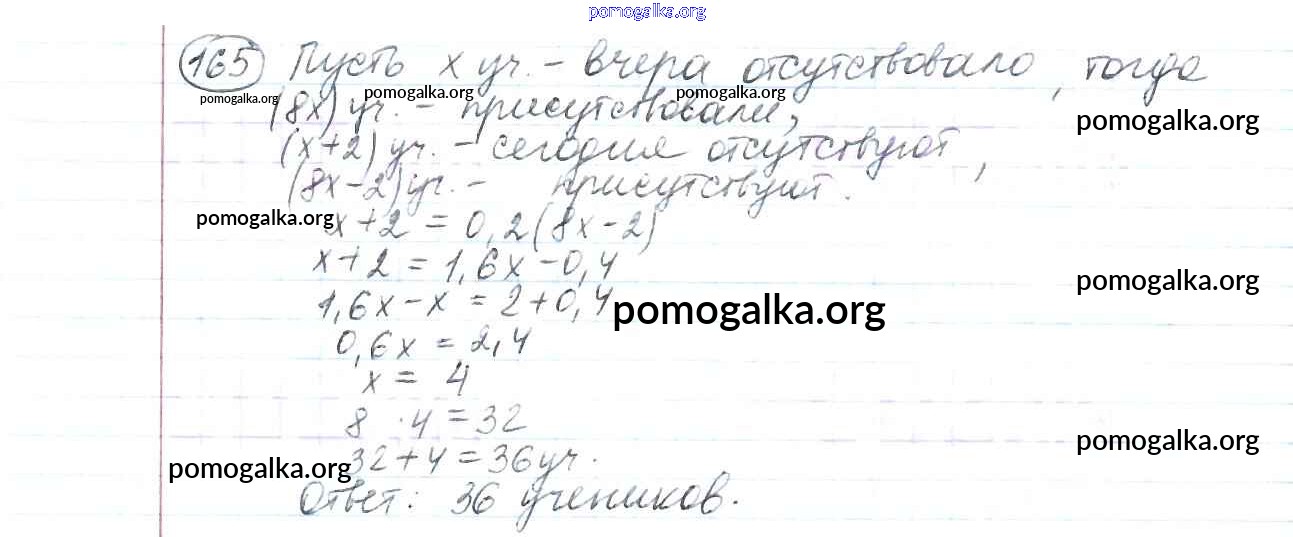 pomogalka.org
165 Пусть x уч. - вчера отсутствовало, тогда
pomogalka.org pomogalka.org pomogalka.org
(8x) уч. - присутствовали,
pomogalka.org
(x+2) уч. - сегодня отсутствуют,
(8x-2) уч. - присутствуют.
pomogalka.org
x+2 = 0,2(8x-2)
x+2 = 1,6x-0,4
pomogalka.org
1,6x-x = 2+0,4
pomogalka.org
0,6x = 2,4
x = 4
8 · 4 = 32
pomogalka.org
32+4=36уч.
pomogalka.org
Ответ: 36 учеников.